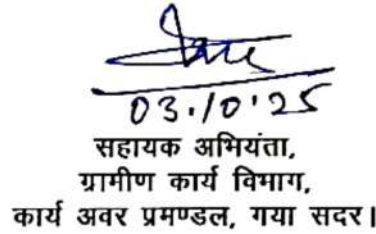 03.10.25
सहायक अभियंता,
ग्रामीण कार्य विभाग,
कार्य अवर प्रमण्डल, गया सदर।